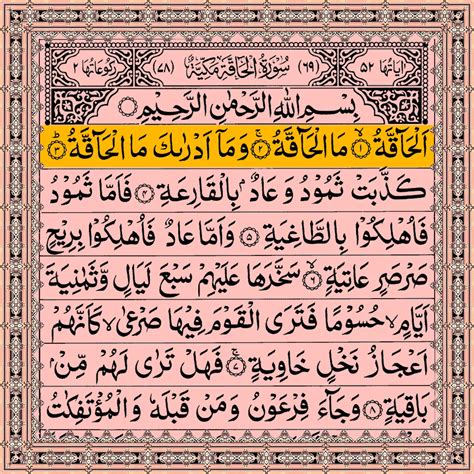 اٰيَاتُهَا ٥٢ (٦٩) سُوْرَةُ الْحَآقَّةِ مَكِّيَّةٌ (٧٨) رُكُوْعَاتُهَا ٢
بِسْمِ اللّٰهِ الرَّحْمٰنِ الرَّحِيْمِ
اَلْحَآقَّةُ ۙ﴿١﴾ مَا الْحَآقَّةُ ۚ﴿٢﴾ وَمَاۤ اَدْرٰىكَ مَا الْحَآقَّةُ ؕ﴿٣﴾
كَذَّبَتْ ثَمُوْدُ وَ عَادٌۢ بِالْقَارِعَةِ ﴿٤﴾ فَاَمَّا ثَمُوْدُ
فَاُهْلِكُوْا بِالطَّاغِيَةِ ﴿٥﴾ وَاَمَّا عَادٌ فَاُهْلِكُوْا بِرِيْحٍ
صَرْصَرٍ عَاتِيَةٍ ۙ﴿٦﴾ سَخَّرَهَا عَلَيْهِمْ سَبْعَ لَيَالٍ وَّثَمٰنِيَةَ
اَيَّامٍ ۙ حُسُوْمًا فَتَرَى الْقَوْمَ فِيْهَا صَرْعٰى ۙ كَاَنَّهُمْ
اَعْجَازُ نَخْلٍ خَاوِيَةٍ ۚ﴿٧﴾ فَهَلْ تَرٰى لَهُمْ مِّنْۢ
بَاقِيَةٍ ﴿٨﴾ وَجَآءَ فِرْعَوْنُ وَمَنْ قَبْلَهٗ وَالْمُؤْتَفِكٰتُ